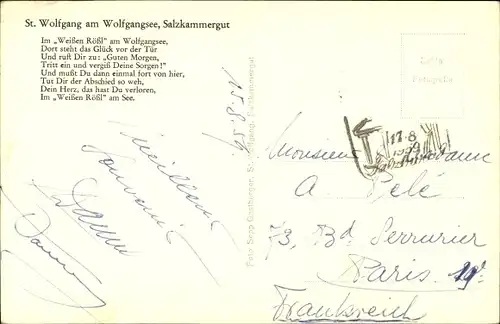 St. Wolfgang am Wolfgangsee, Salzkammergut
Im „Weißen Rößl" am Wolfgangsee,
Dort steht das Glück vor der Tür
Und ruft Dir zu: „Guten Morgen,
Tritt ein und vergiß Deine Sorgen!"
Und mußt Du dann einmal fort von hier,
Tut Dir der Abschied so weh,
Dein Herz, das hast Du verloren,
Im „Weißen Rößl" am See.
15.8.59
Meilleurs
souvenirs
Foto Sepp
St. Wolfgang, Salzkammergut
Echte
Fotografie
17.8
1959
Monsieur Madame
A Pelé
73, Bd Serrurier
Paris 19e
Frankreich